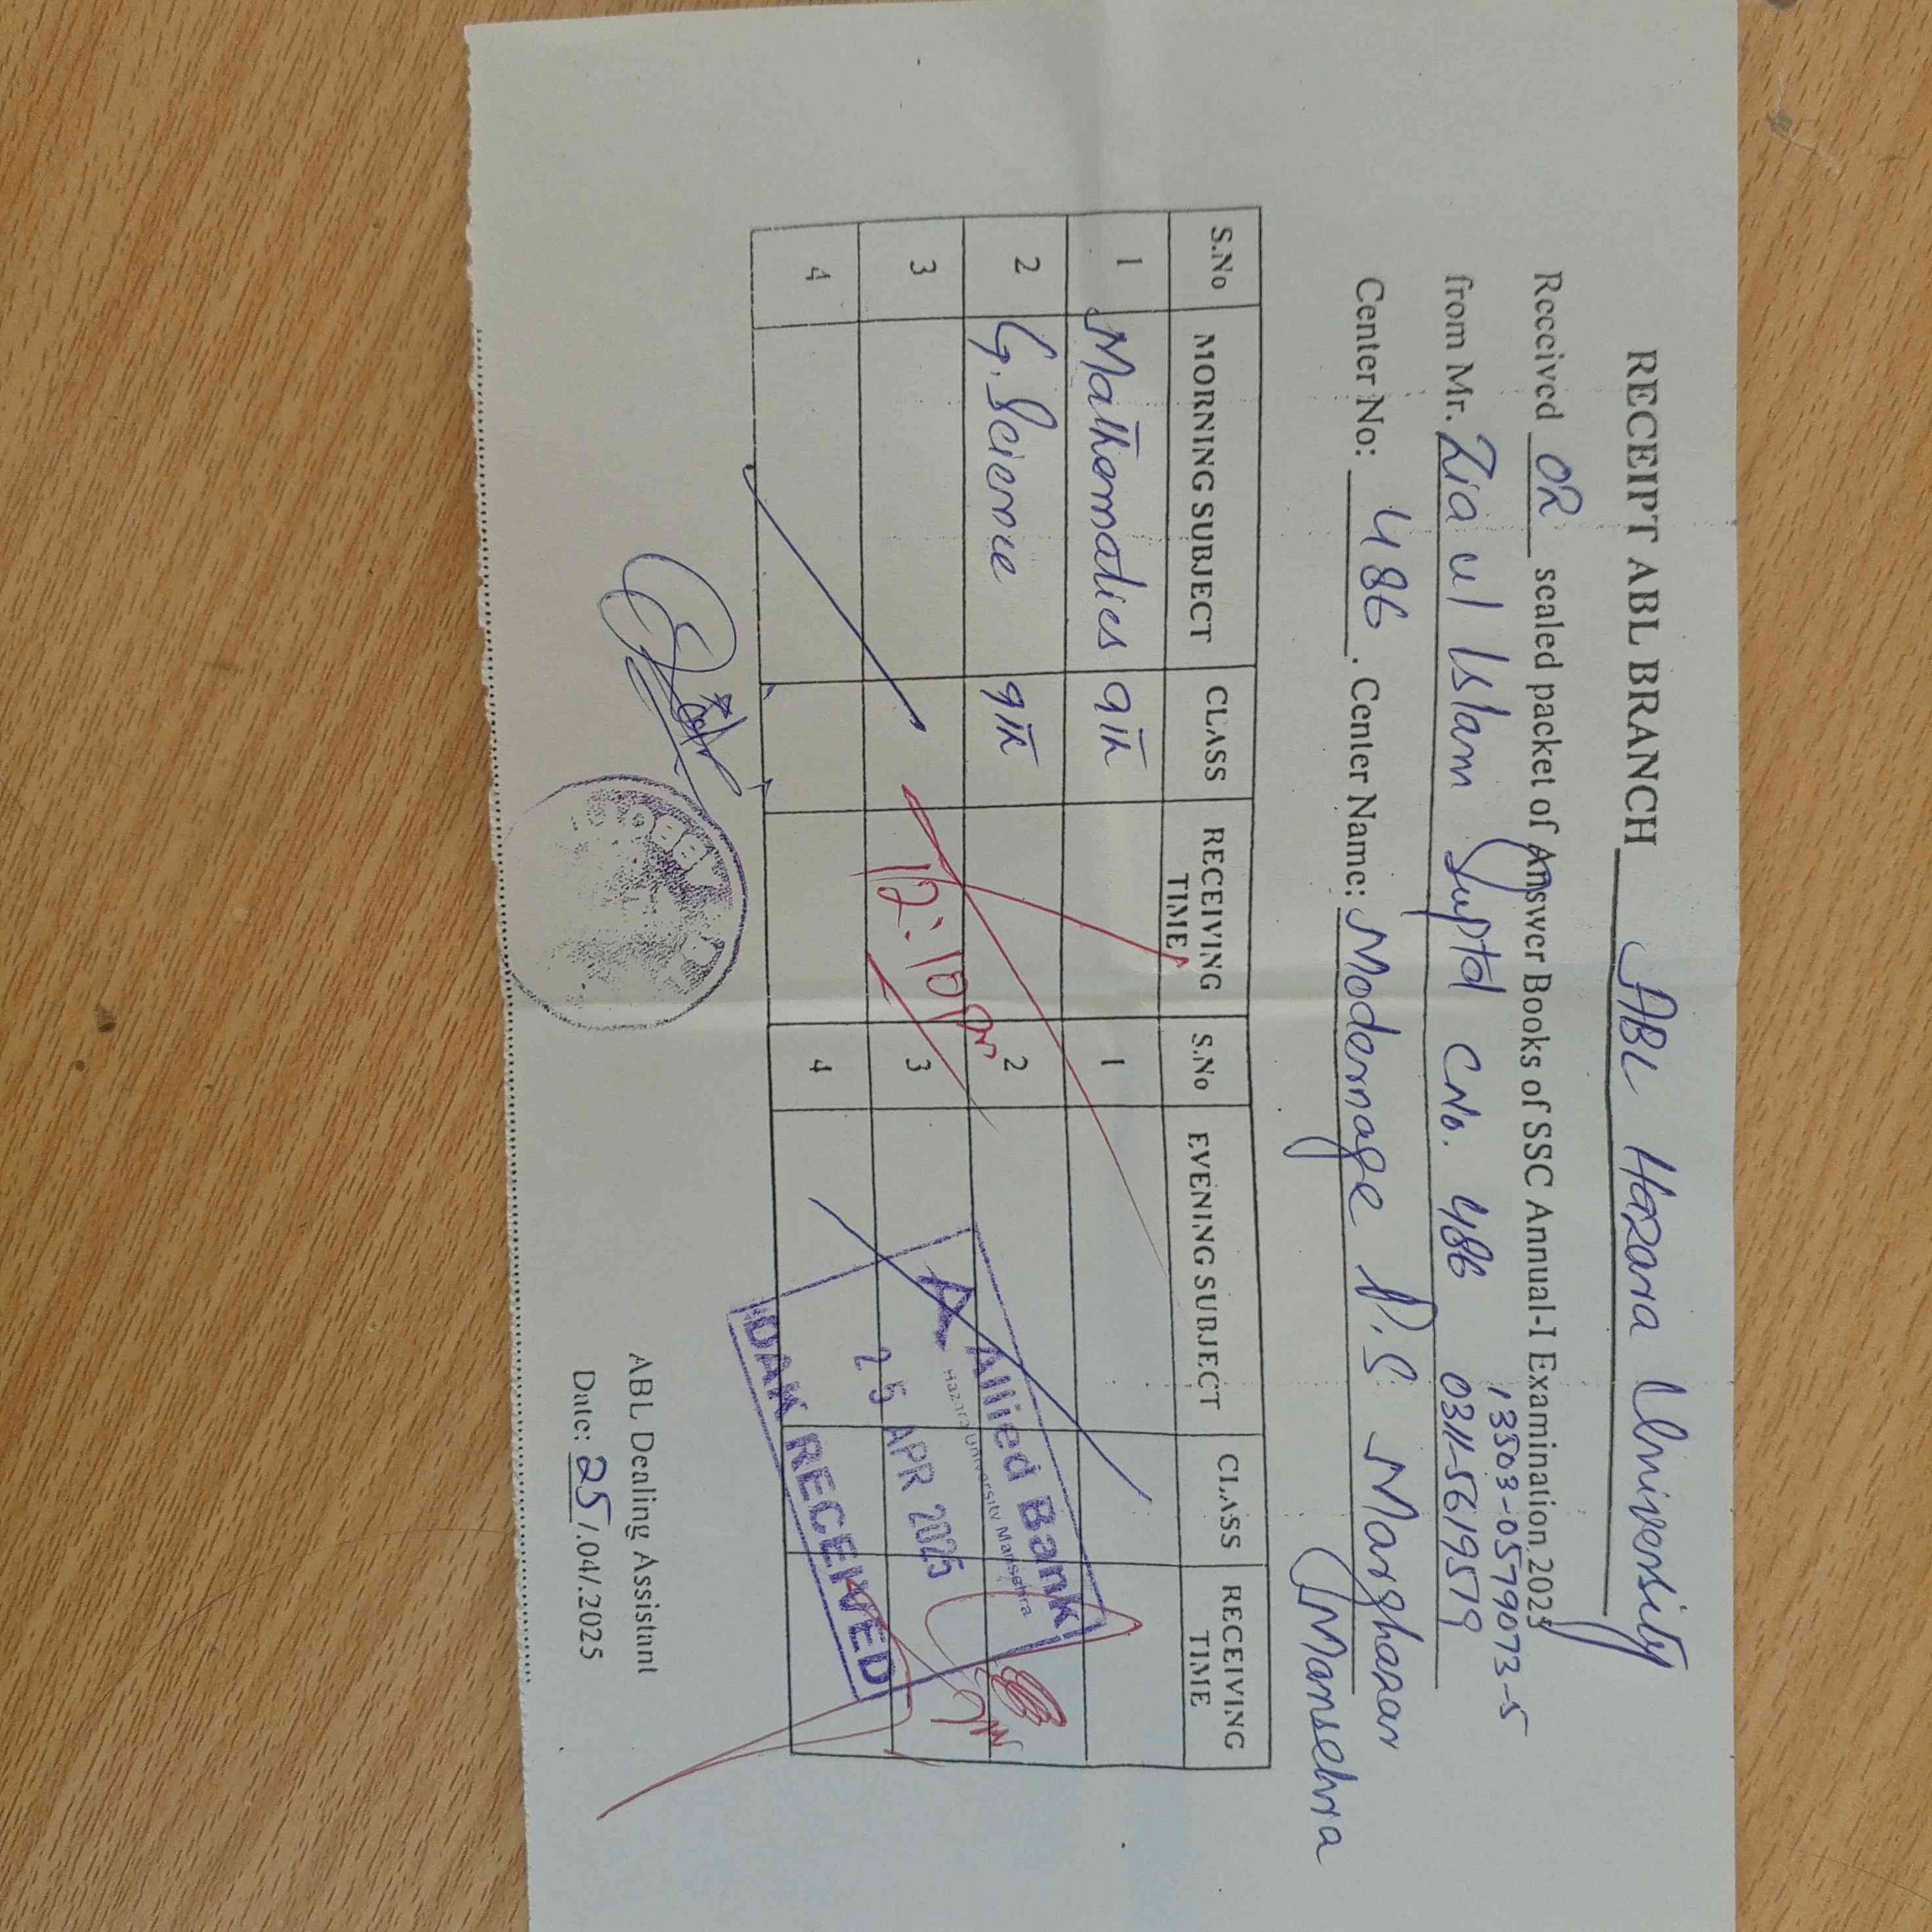 RECEIPT ABL BRANCH ABL Hazara University
Received 02 sealed packet of Answer Books of SSC Annual-I Examination 2025
13503-0579073-5
from Mr. Zia ul Islam Suptd CNo. 486 0311-5619579
Center No: 486. Center Name: Modernage P.S Marghazar
Mansehra
S.No MORNING SUBJECT CLASS RECEIVING TIME S.No EVENING SUBJECT CLASS RECEIVING TIME
1 Mathematics 9th 1
2 G. Science 9th 2
3 12:10 Pm 3
4 4
Allied Bank
Hazara University Mansehra
25 APR 2025
DAK RECEIVED
ABL Dealing Assistant
Date: 25/.04/.2025